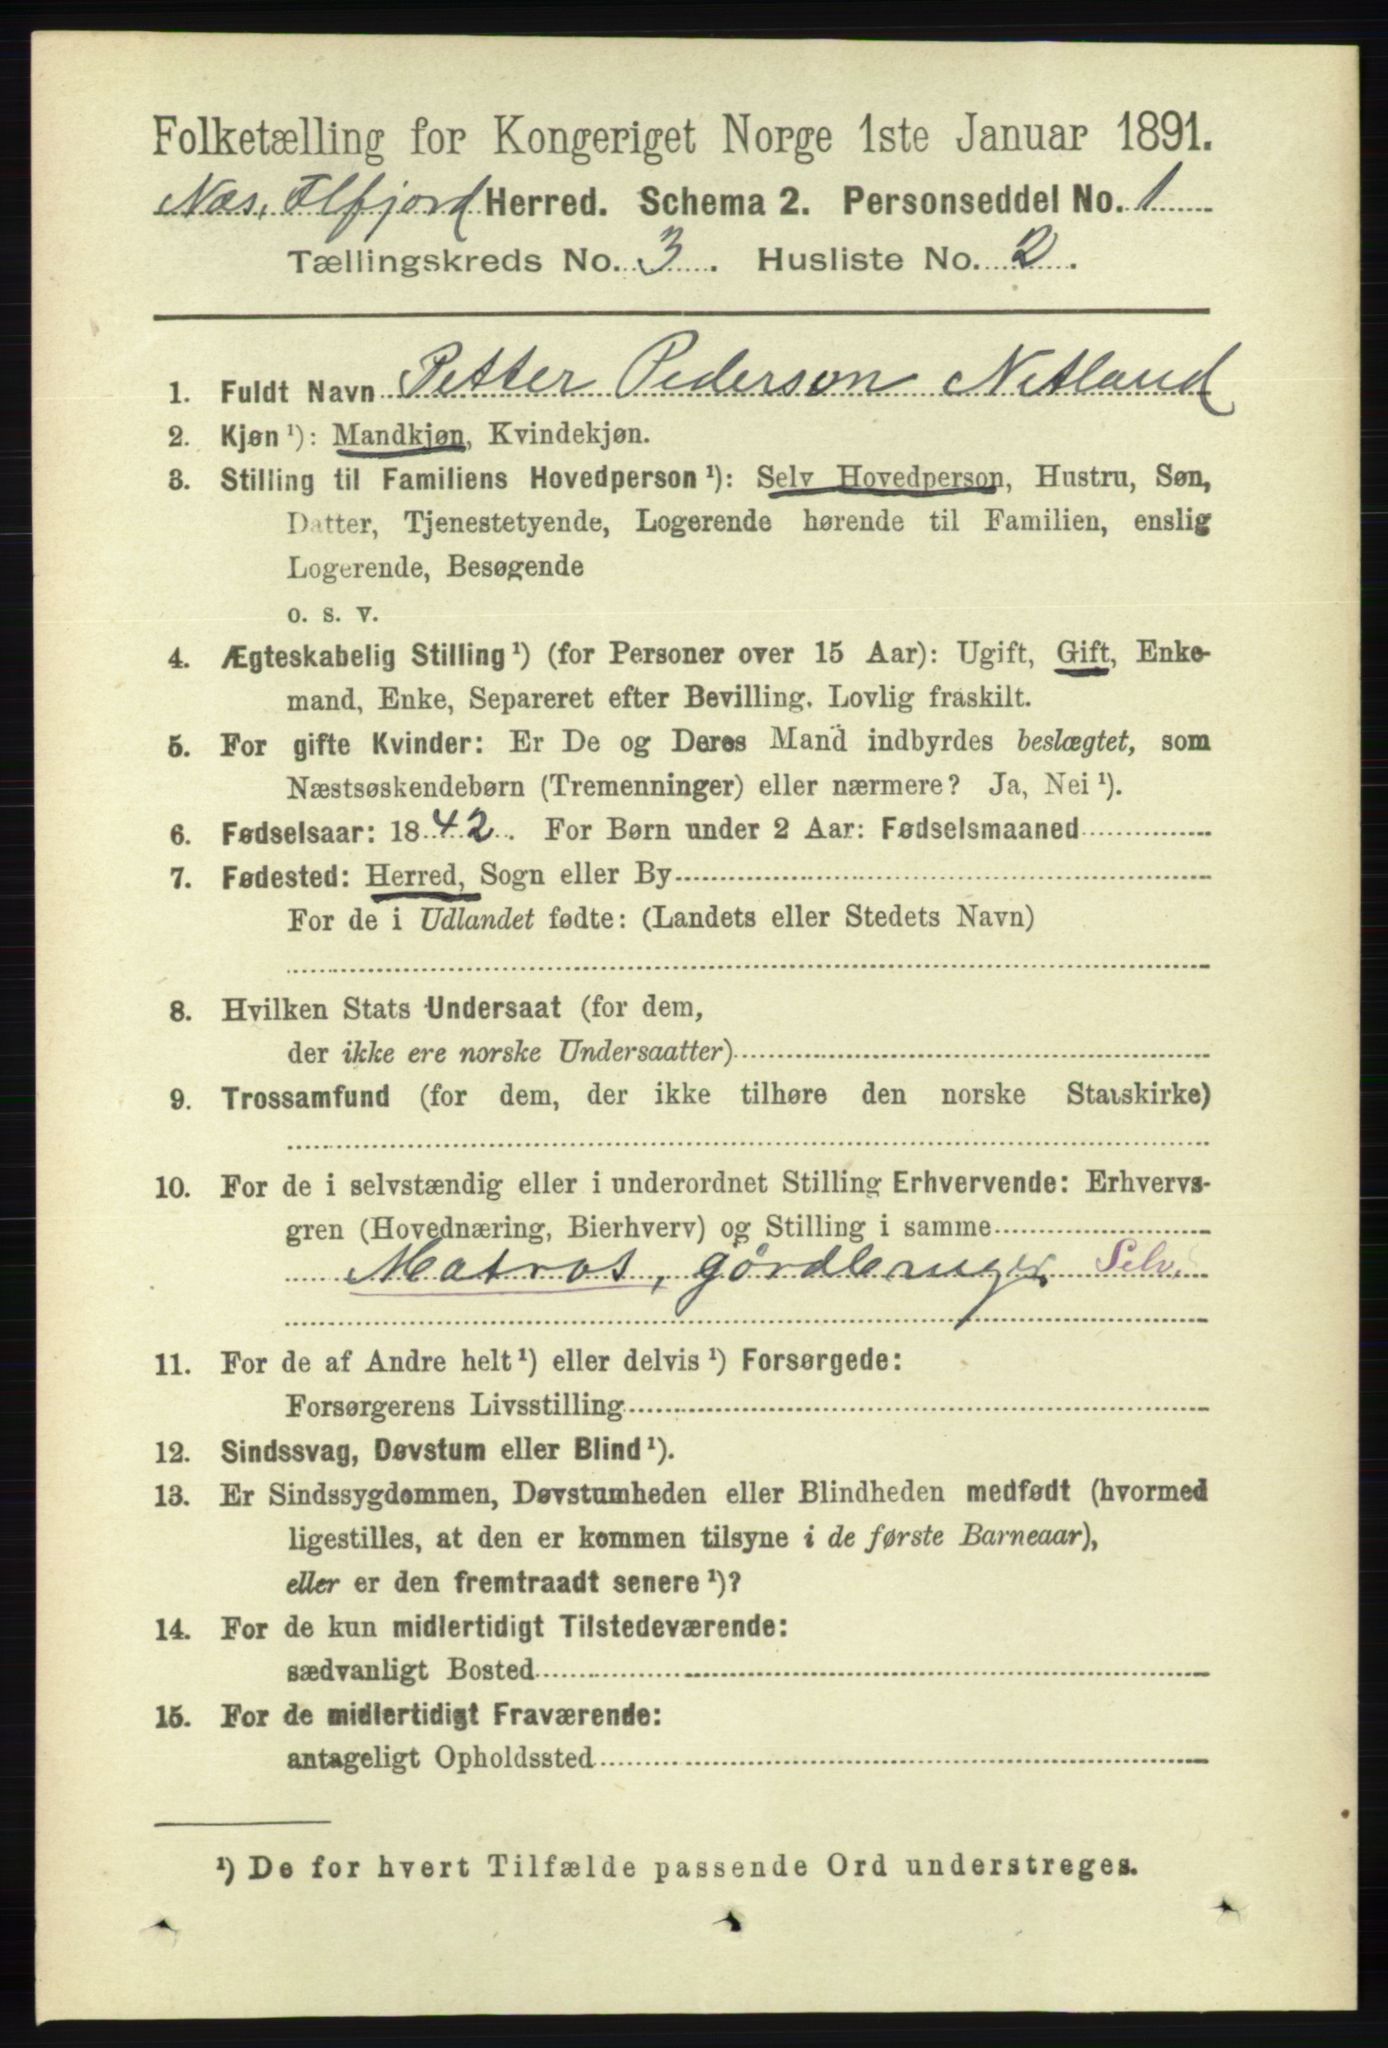 Folketælling for Kongeriget Norge 1ste Januar 1891.
Næs, Flkfjord Herred. Schema 2. Personseddel No. 1
Tællingskreds No. 3. Husliste No. 2.
1. Fuldt Navn Petter Pederson Netland
2. Kjøn ¹): Mandkjøn, Kvindekjøn.
3. Stilling til Familiens Hovedperson ¹): Selv Hovedperson, Hustru, Søn,
Datter, Tjenestetyende, Logerende hørende til Familien, enslig
Logerende, Besøgende
o. s. v.
4. Ægteskabelig Stilling ¹) (for Personer over 15 Aar): Ugift, Gift, Enke-
mand, Enke, Separeret efter Bevilling. Lovlig fraskilt.
5. For gifte Kvinder: Er De og Deres Mand indbyrdes beslægtet, som
Næstsøskendebørn (Tremenninger) eller nærmere? Ja, Nei ¹).
6. Fødselsaar: 1842. For Børn under 2 Aar: Fødselsmaaned
7. Fødested: Herred, Sogn eller By
For de i Udlandet fødte: (Landets eller Stedets Navn)
8. Hvilken Stats Undersaat (for dem,
der ikke ere norske Undersaatter)
9. Trossamfund (for dem, der ikke tilhøre den norske Statskirke)
10. For de i selvstændig eller i underordnet Stilling Erhvervende: Erhvervs-
gren (Hovednæring, Bierhverv) og Stilling i samme
Matros, gördbruger. Selv.
11. For de af Andre helt ¹) eller delvis ¹) Forsørgede:
Forsørgerens Livsstilling
12. Sindssvag, Døvstum eller Blind ¹).
13. Er Sindssygdommen, Døvstumheden eller Blindheden medfødt (hvormed
ligestilles, at den er kommen tilsyne i de første Barneaar),
eller er den fremtraadt senere ¹)?
14. For de kun midlertidigt Tilstedeværende:
sædvanligt Bosted
15. For de midlertidigt Fraværende:
antageligt Opholdssted
¹) De for hvert Tilfælde passende Ord understreges.